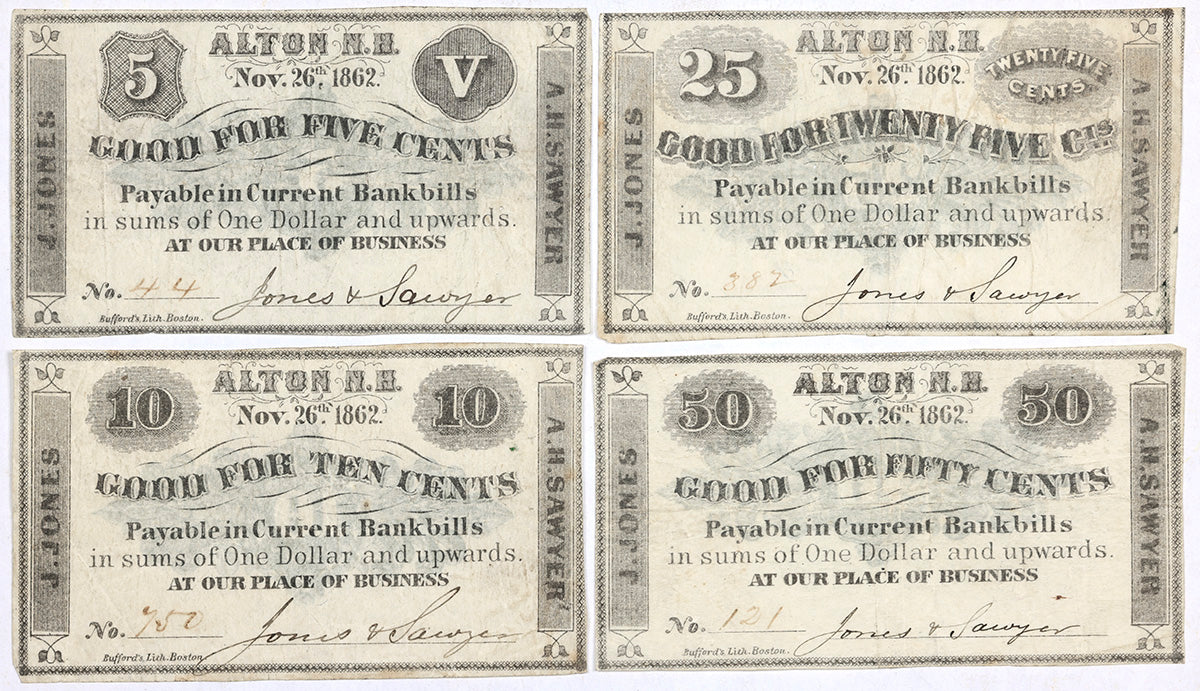 5 ALTON N.H. V
Nov. 26th, 1862.
GOOD FOR FIVE CENTS
Payable in Current Bankbills
in sums of One Dollar and upwards.
AT OUR PLACE OF BUSINESS
No. 44 Jones & Sawyer
Bufford's Lith. Boston.
J. JONES
A.H. SAWYER
25 ALTON N.H. TWENTY FIVE
CENTS.
Nov. 26th. 1862.
GOOD FOR TWENTY FIVE Cts.
Payable in Current Bankbills
in sums of One Dollar and upwards.
AT OUR PLACE OF BUSINESS
No. 382 Jones & Sawyer
Bufford's Lith. Boston.
J. JONES
A.H. SAWYER
10 ALTON N.H. 10
Nov. 26th. 1862.
GOOD FOR TEN CENTS
Payable in Current Bankbills
in sums of One Dollar and upwards.
AT OUR PLACE OF BUSINESS
No. 750 Jones & Sawyer
Bufford's Lith. Boston
J. JONES
A.H. SAWYER
50 ALTON N.H. 50
Nov. 26th. 1862.
GOOD FOR FIFTY CENTS
Payable in Current Bankbills
in sums of One Dollar and upwards.
AT OUR PLACE OF BUSINESS
No. 121 Jones & Sawyer
Bufford's Lith. Boston.
J. JONES
A.H. SAWYER